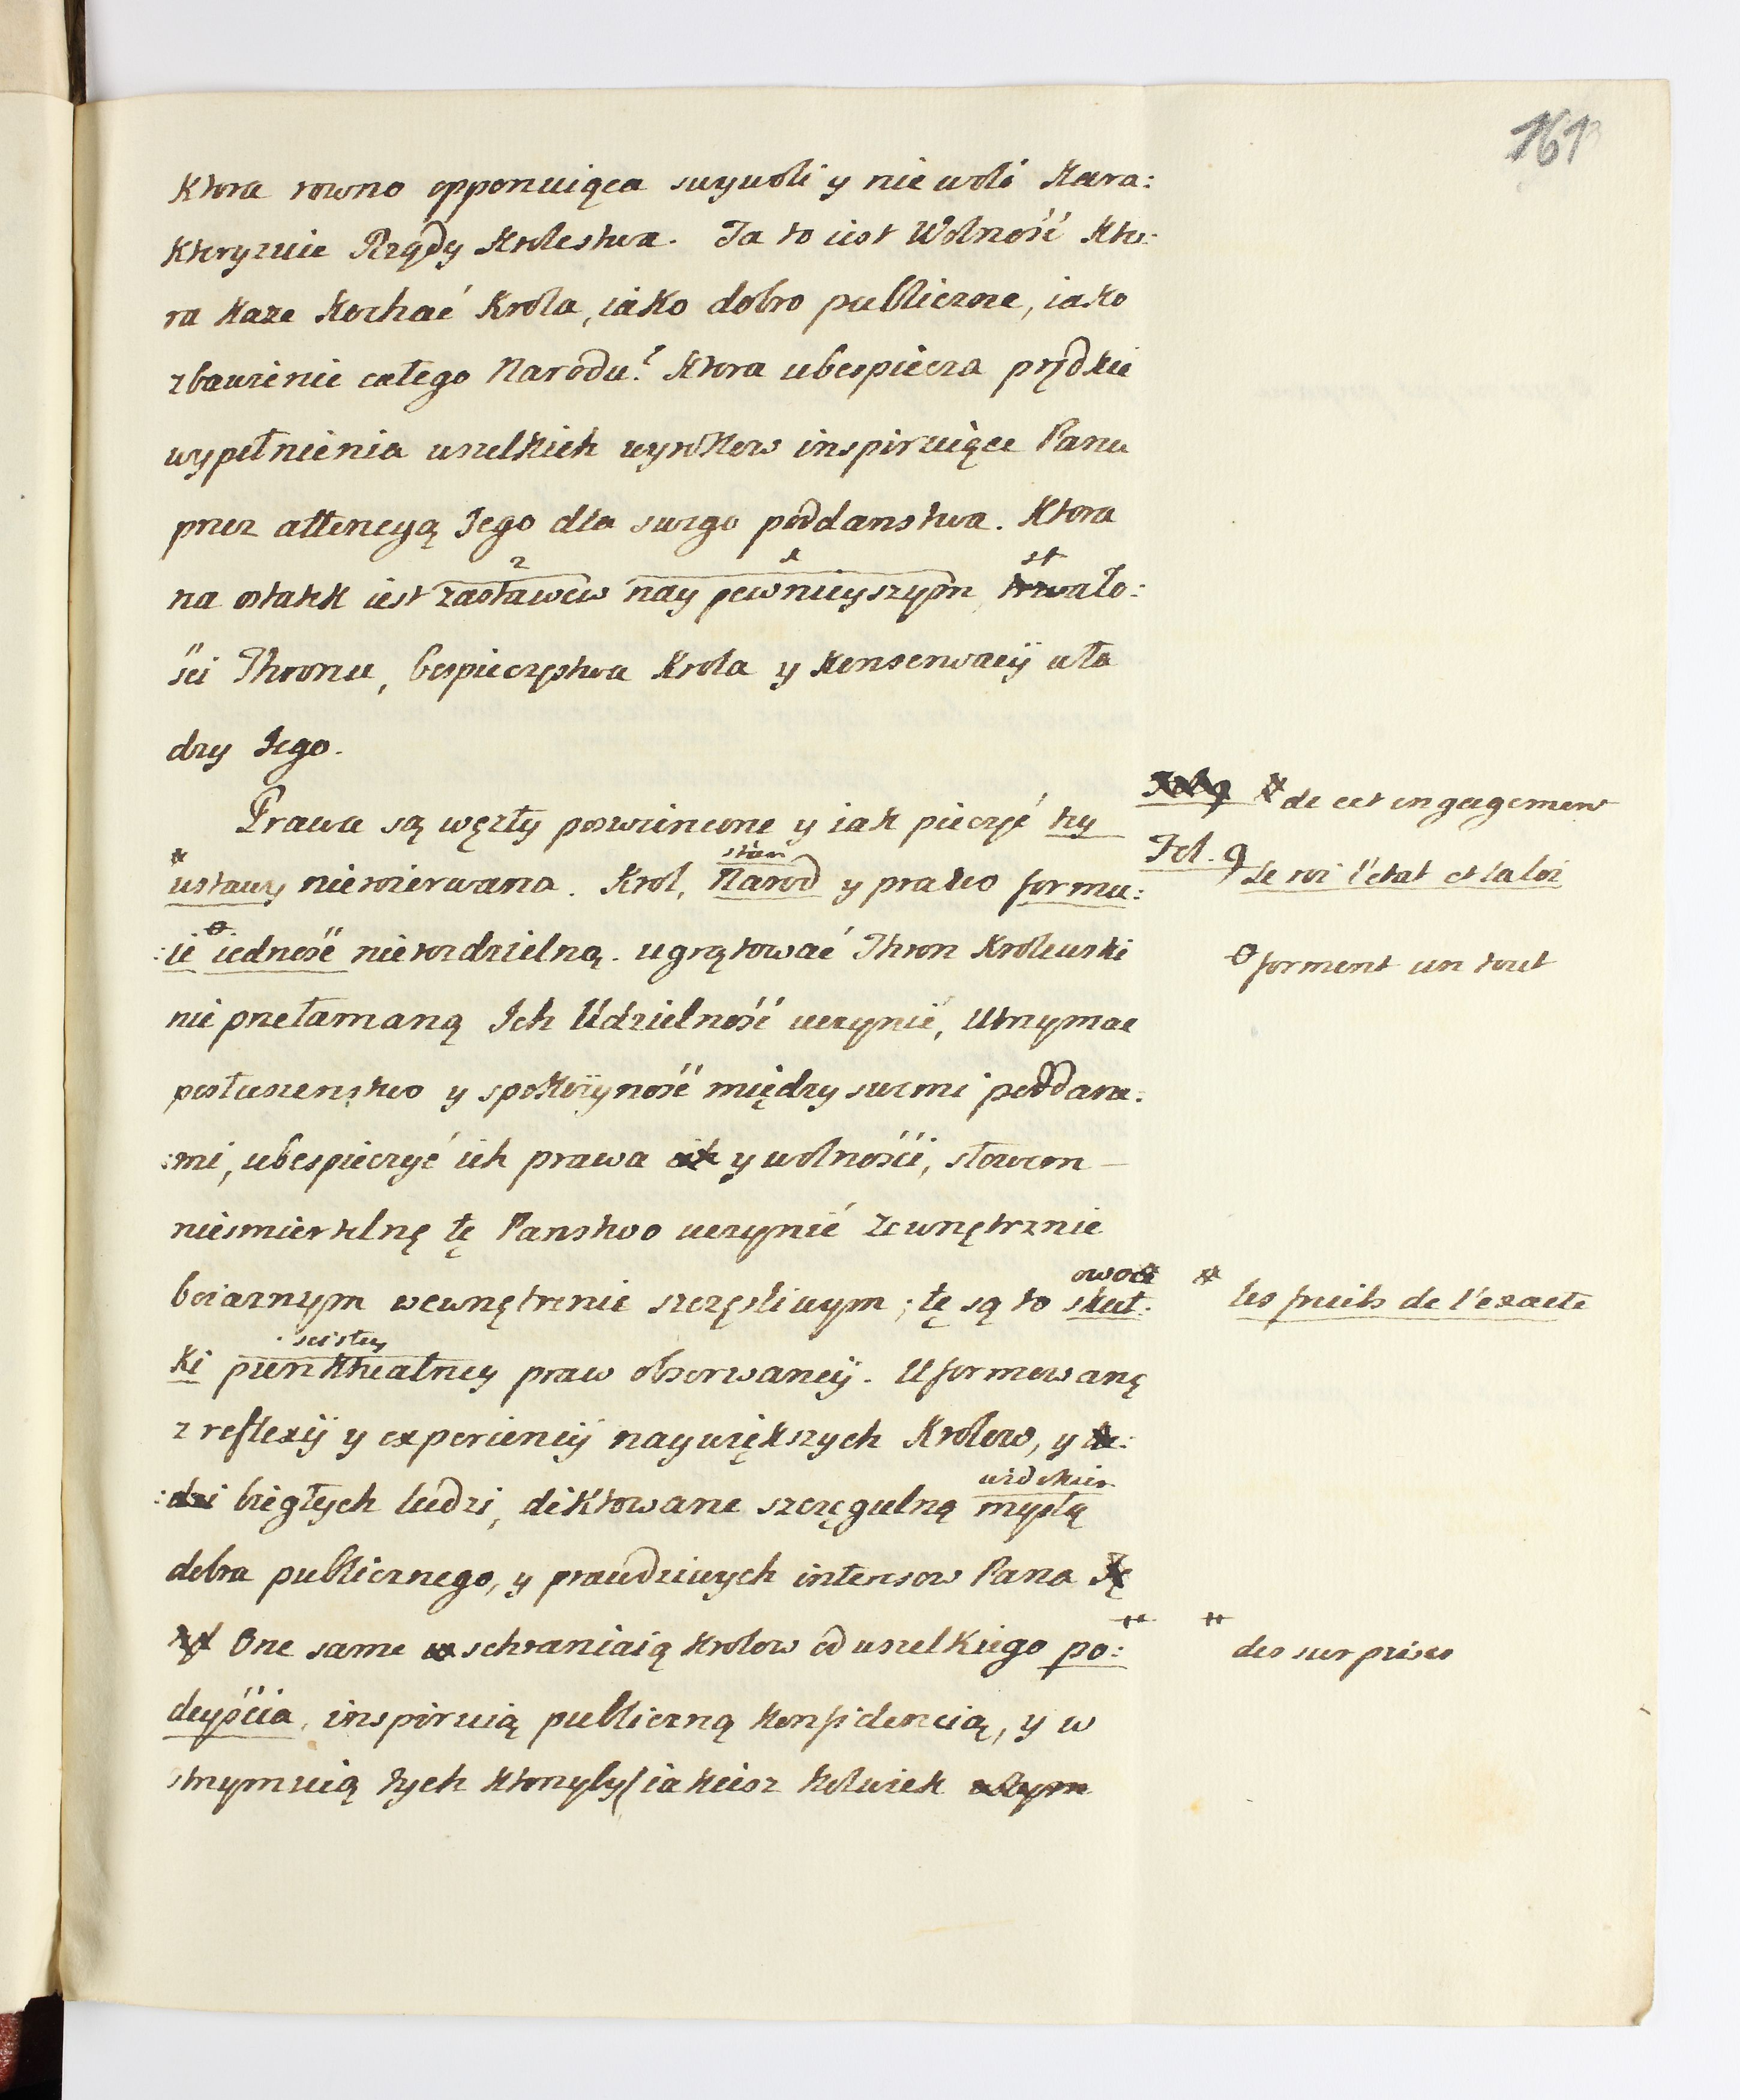 161
Ktora rowno opponuiąca swywoli y niewoli Kara:
kteryzuie Rządy Krolestwa. Ta to iest Wolność Kto:
ra każe kochać Krola, iako dobro publiczne, iako
zbawienie całego Narodu? Ktora ubespiecza prędkie
wypełnienia wszelkich wyrokow inspiruiące Panu
przez attencyą Jego dla swego poddanstwa. Ktora
2 1 st
na ostatek iest zastawew naypewnieyszym trwało:
ści Thronu, bespieczęstwa Krola y Konserwacÿ wła
dzy Jego.
Prawa są węzły poswiencone y iak pieczęć ty
* stan
ustawy nierozerwana. Krol, Narod y prawo formu:
:ie iedność nierozdzielną. ugrątować Thron Krolewski
nie przełamaną Ich Udzielność uczynić, Utrzymac
posłuszenstwo y spokoyność między swemi poddane:
:mi, ubespieczyć ich prawa y wolności, słowem
niesmiertelnę tę Panstwo uczynić zewnętrznie
owoce
boiaznym wewnętrznie szczęsliwym; tę są to skut:
scisłey
ki punktualney praw obserwancÿ. Uformowanę
z reflexÿ y experiencÿ naywiększych Krolow, y
widokiem
biegłych ludzi, diktowane szczęgulną myslą
dobra publicznego, y prawdziwych interesow Pana
One same schraniaią Krolow od wszelkiego po:
deyścia, inspiruią publiczną konfidencią, y w
strzymuią tych ktorzyby iakiesz kolwiek
Fol. 9 * de cet engagement
Fol. 9 Le roi l'etat et la loi
forment un tout
* les fruits de l'exacte
** des surprises